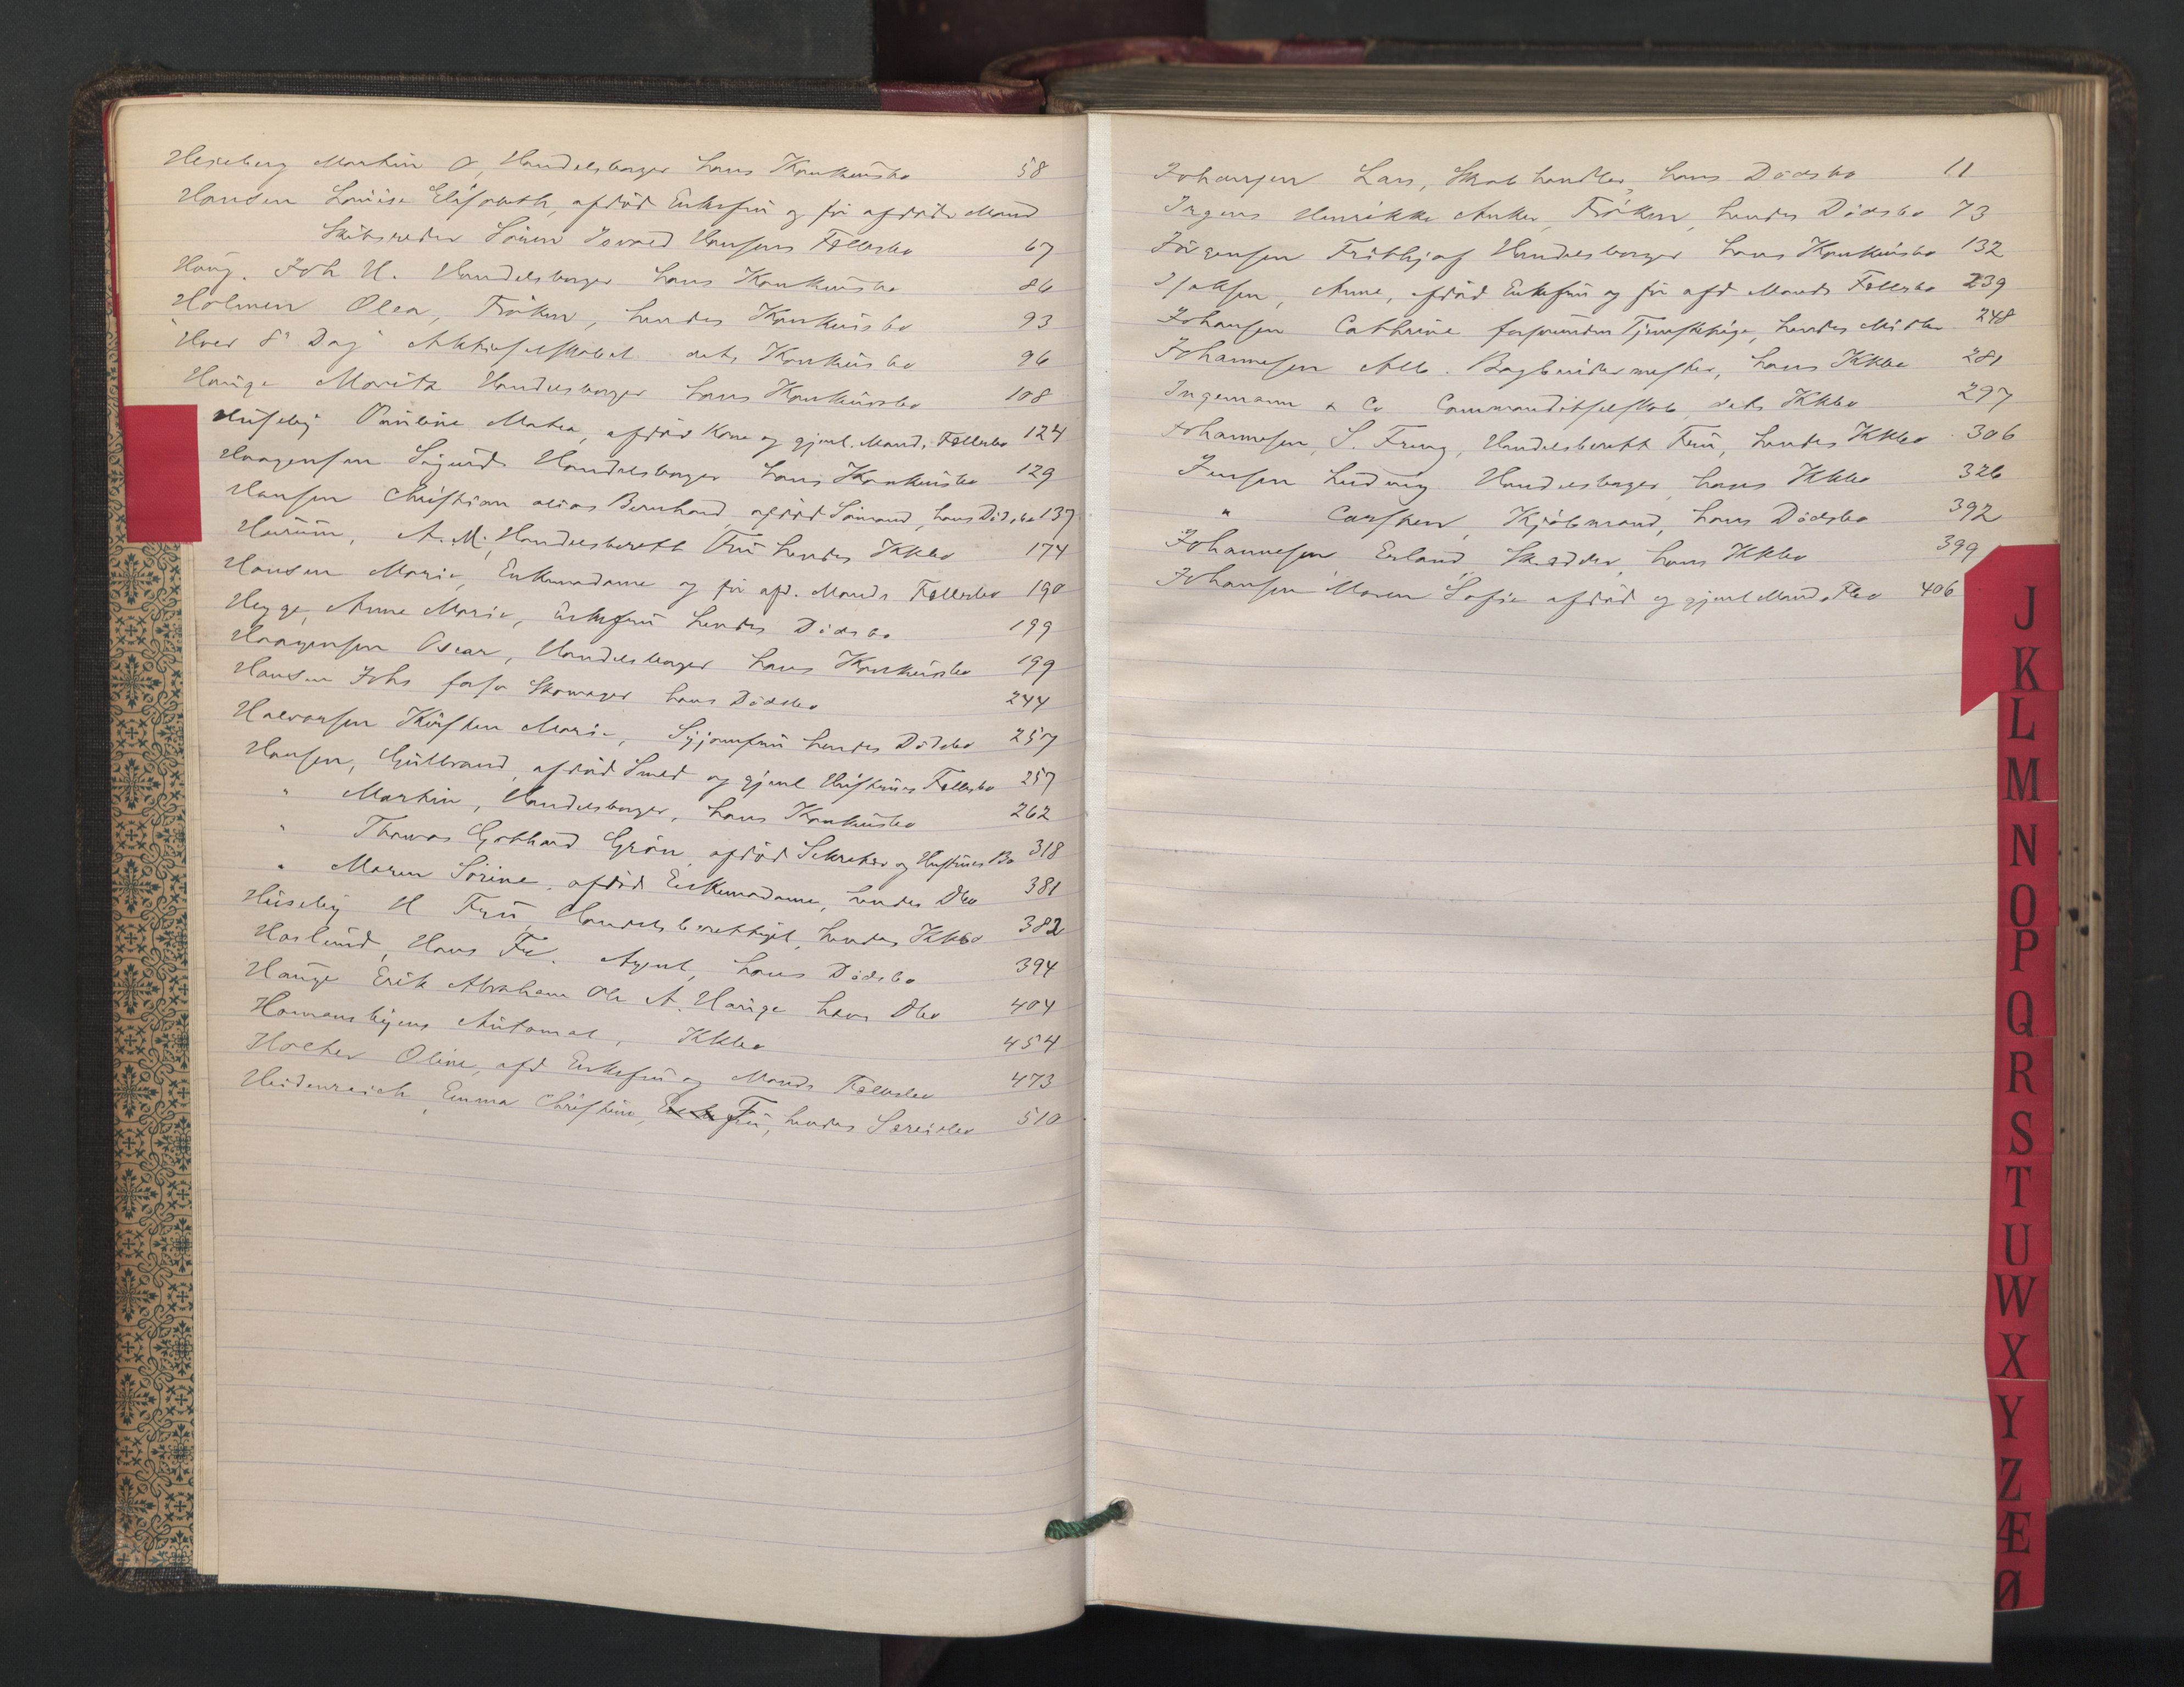 Heieberg Martin O, Handelsborger hans Konkursbo 58
Hansen Louise Elisabeth, afdød Enkefru og før afdøde Mand
Skibsreder Sören Hansens Fællesbo 67
Haug, Joh H. Handelsborger hans Konkursbo 86
Holmen Olea, Fröken, hendes Konkursbo 93
"Hver 8de Dag" Aktieselskabet dets Konkursbo 96
Hauge Moritz Handelsborger hans Konkursbo 108
Huseby Pauline Matea, afdød Kone og gjenl. Mands Fællesbo 124
Haagensen Sigurd Handelsborger hans Konkursbo 129
Hansen Christian alias Bernhard, afdød Sömand, hans Dödsbo 137
Hurum, A. M. Handelsberett Fru hendes Kkbo 174
Hansen Marie, Enkemadame og før afd. Mands Fællesbo 190
Hegge, Anne Marie, Enkefru hendes Dödsbo 199
Haagensen Oscar, Handelsborger hans Konkursbo 199
Hansen Johs forhv Skomager hans Dödsbo 244
Halvorsen Kirsten Marie, Syjomfru hendes Dödsbo 257
Hansen, Gulbrand, afdød Smed og gjenl Hustrues Fællesbo 257
" Martin, Handelsborger, hans Konkursbo 262
" Thomas Gotthard Grön, afdød Sekretær og Hustrues Bo 318
" Maren Sörine, afdød Enkemadame, hendes Dbo 381
Huseby H Fru, Handelsberettiget, hendes Kkbo 382
Haslund, Hans Fr. Agent, hans Dödsbo 394
Hauge Erik Abraham Ole A. Hauge hans Dbo 404
Homansbyens Automat, Kkbo 454
Holter Oline, afd Enkefru og Mands Fællesbo 473
Heidenreich, Emma Christine, Fru, hendes Særeiebo 510
Johansen Lars, Skobhandler, hans Dödsbo 11
Irgens Henrikke Anker, Fröken, hendes Dödsbo 73
Jörgensen Frithjof Handelsborger hans Konkursbo 132
Isaksen, Anne, afdød Enkefru og før afd Mands Fællesbo 239
Johansen Cathrine forsvunden Tjenestepige, hendes Midler 248
Johannesen Alb. Bogbindermester, hans Kkbo 281
Ingemann & Co Commanditselskab, dets Kkbo 297
Johannesen, S. Freng, Handelsberett Fru, hendes Kkbo 306
Jensen Ludvig Handelsborger hans Kkbo 326
" Carsten, Kjöbmand, hans Dödsbo 392
Johannesen Erland Skrædder, hans Kkbo 399
Johansen Maren Sofie afdød og gjenl Mands Fbo 406
J
K
L
M
N
O
P
Q
R
S
T
U
W
X
Y
Z
Æ
Ø